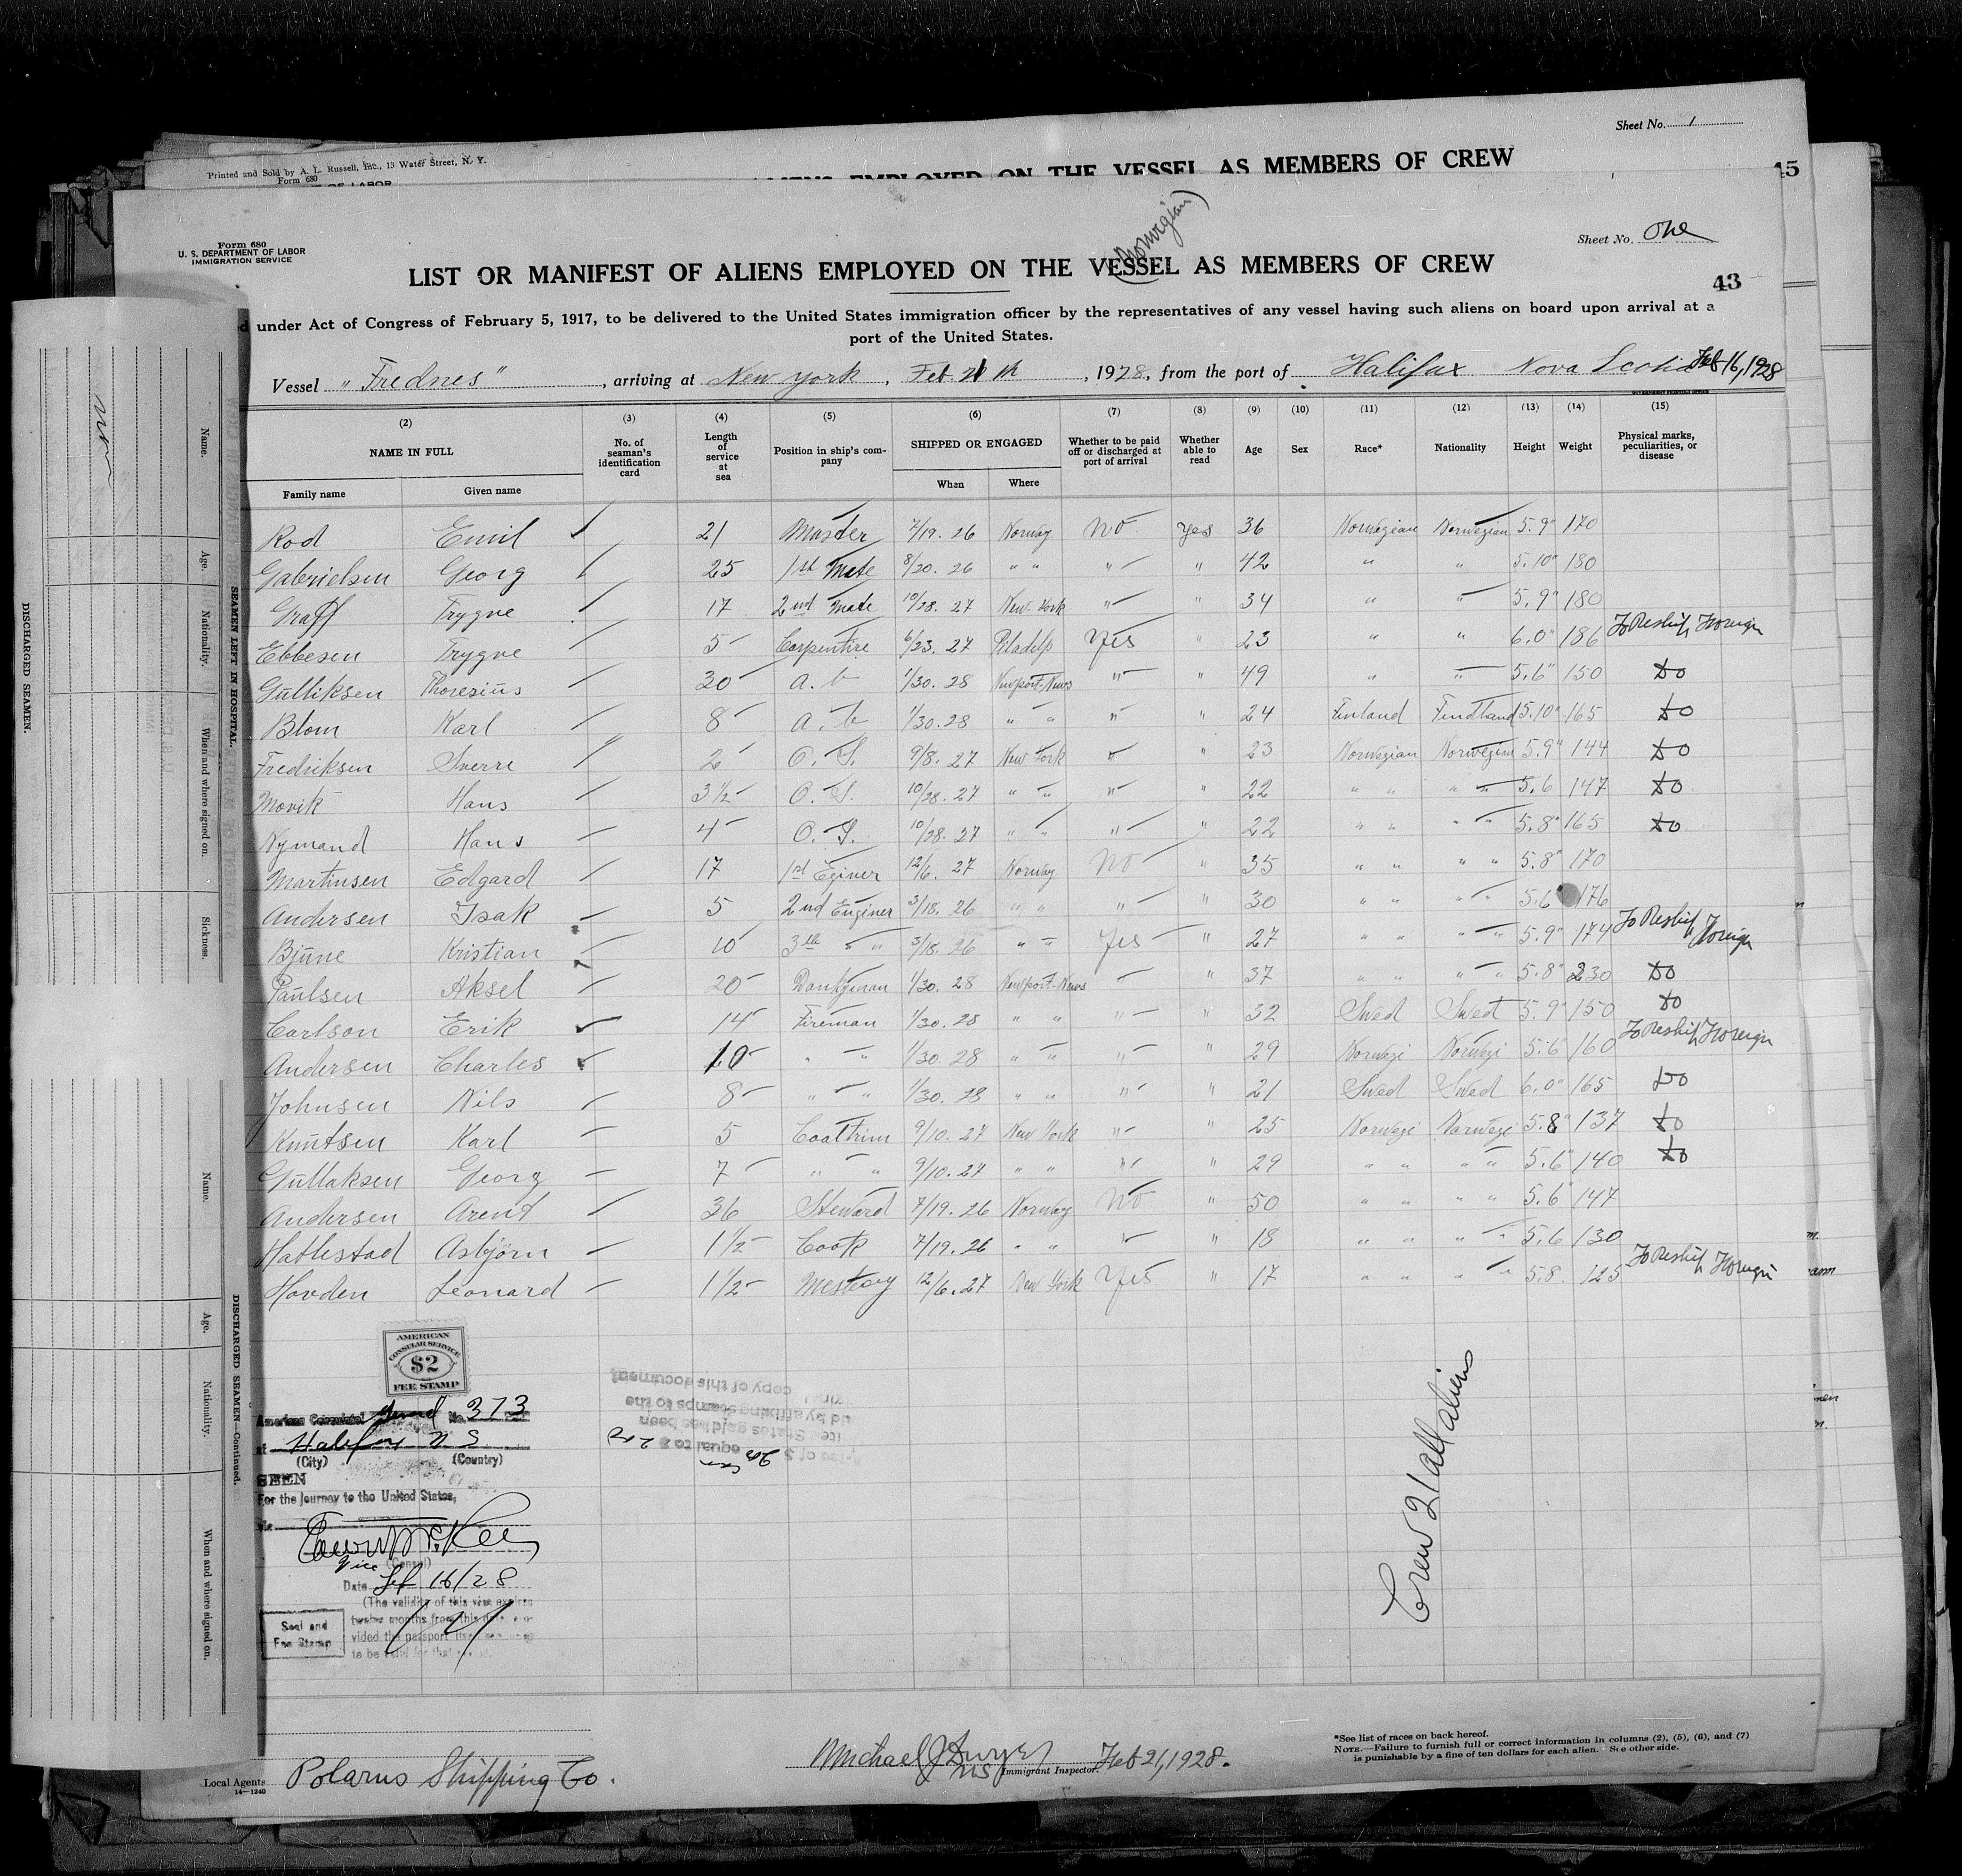 Sheet No. 1
Printed and Sold by A. L. Russell, Inc., 13 Water Street, N. Y.
Form 680
OF LABOR
ALIENS EMPLOYED ON THE VESSEL AS MEMBERS OF CREW
45
(Norwegian)
Form 680
U. S. DEPARTMENT OF LABOR
IMMIGRATION SERVICE
Sheet No. One
LIST OR MANIFEST OF ALIENS EMPLOYED ON THE VESSEL AS MEMBERS OF CREW
43
d under Act of Congress of February 5, 1917, to be delivered to the United States immigration officer by the representatives of any vessel having such aliens on board upon arrival at a
port of the United States.
Vessel "Frednes", arriving at New York, Feb 21th, 1928, from the port of Halifax Nova Scotia Feb 16, 1928
(2) (3) (4) (5) (6) (7) (8) (9) (10) (11) (12) (13) (14) (15)
NAME IN FULL No. of seaman's identification card Length of service at sea Position in ship's company SHIPPED OR ENGAGED Whether to be paid off or discharged at port of arrival Whether able to read Age Sex Race* Nationality Height Weight Physical marks, peculiarities, or disease
Family name Given name When Where
Rod Emil 21 Master 7/19. 26 Norway No Yes 36 Norwegian Norwegian 5.9" 170
Gabrielsen Georg 25 1st Mate 8/20. 26 " " " " 42 " " 5.10" 180
Graff Trygve 17 2nd Mate 10/28. 27 New York " " 34 " " 5.9" 180
Ebbesen Trygve 5 Carpentire 6/23. 27 Piladelp Yes " 23 " " 6.0" 186 To Reship Foreign
Gulliksen Thoresius 30 a. b 1/30. 28 Newport-News " " 49 " " 5.6" 150 Do
Blom Karl 8 a. b 1/30. 28 " " " " 24 Finland Findland 5.10" 165 Do
Fredriksen Sverre 2 O. S. 9/8. 27 New York " " 23 Norwegian Norwegian 5.9" 144 Do
Movik Hans 3 1/2 O. S. 10/28. 27 " " " " 22 " " " " 5.6 147 Do
Nymand Hans 4 O. S. 10/28. 27 " " " " 22 " " " " 5.8" 165 Do
Martinsen Edgard 17 1st Eginer 12/6. 27 Norway No " 35 " " " " 5.8" 170
Andersen Isak 5 2nd Enginer 3/18. 26 " " " " 30 " " " " 5.6" 176
Bjune Kristian 10 3th " " 3/18. 26 " " Yes " 27 " " " " 5.9" 174 To Reship Foreign
Paulsen Aksel 20 Dankyman 1/30. 28 Newport-News " 37 " " " " 5.8" 230 Do
Carlson Erik 14 Fireman 1/30. 28 " " " " 32 Swed Swed 5.9" 150 Do
Andersen Charles 10 " " 1/30. 28 " " " " 29 Norwegi Norwegi 5.6" 160 To Reship Foreign
Johnsen Nils 8 " " 1/30. 28 " " " " 21 Swed Swed 6.0" 165 Do
Knutsen Karl 5 Coaltrim 9/10. 27 New York " " 25 Norwegi Norwegi 5.8" 137 Do
Gullaksen Georg 7 " " 9/10. 27 " " " " 29 " " " " 5.6" 140 Do
Andersen Arent 36 Steward 7/19. 26 Norway No " 50 " " " " 5.6" 147
Hatlestad Asbjörn 1 1/2 Cook 7/19. 26 " " " " 18 " " " " 5.6 130
Hovden Leonard 1 1/2 Messboy 12/6. 27 New York Yes " 17 " " " " 5.8. 125 To Reship Foreign
AMERICAN
CONSULAR SERVICE
$2
FEE STAMP
American Consulate General No. 373
at Halifax N S
(City) (Country)
SEEN
For the journey to the United States,
Vice (Consul)
Date Feb 16/28
(The validity of this visa expires
twelve months from this date, pro-
vided the passport
to be valid for that
Seal and
Fee Stamp
copy of this document
by affixing stamps to the
States gold has been
equal to $
Crew 21 all aliens
*See list of races on back hereof.
NOTE.—Failure to furnish full or correct information in columns (2), (5), (6), and (7)
is punishable by a fine of ten dollars for each alien. See other side.
Local Agents Polarus Shipping Co.
14—1240
Michael J Dwyer Immigrant Inspector. Feb 21, 1928.
DISCHARGED SEAMEN.
Name.
Age.
Nationality.
When and where signed on.
Sickness.
SEAMEN LEFT IN HOSPITAL.
Name.
Age.
Nationality.
When and where signed on.
DISCHARGED SEAMEN—Continued.